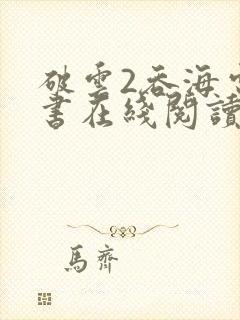 破雲2吞海
書在綫閱讀
馬齊